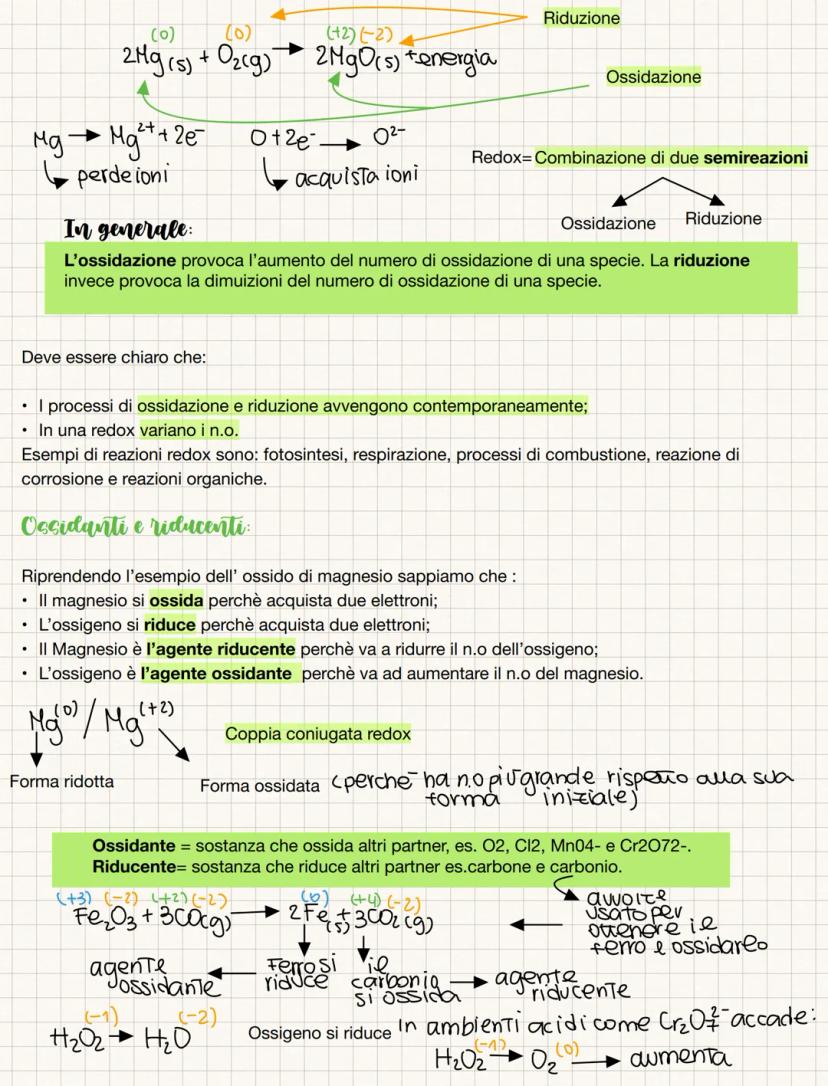 Riduzione
(0) (0) (+2) (-2)
2Mg(s) + O2(g) → 2MgO(s) + energia
Ossidazione
Mg → Mg²⁺ + 2e⁻ O + 2e⁻ → O²⁻
perde ioni acquista ioni
Redox= Combinazione di due semireazioni
Ossidazione Riduzione
In generale:
L'ossidazione provoca l'aumento del numero di ossidazione di una specie. La riduzione
invece provoca la dimuizioni del numero di ossidazione di una specie.
Deve essere chiaro che:
• I processi di ossidazione e riduzione avvengono contemporaneamente;
• In una redox variano i n.o.
Esempi di reazioni redox sono: fotosintesi, respirazione, processi di combustione, reazione di
corrosione e reazioni organiche.
Ossidanti e riducenti:
Riprendendo l'esempio dell' ossido di magnesio sappiamo che :
• Il magnesio si ossida perchè acquista due elettroni;
• L'ossigeno si riduce perchè acquista due elettroni;
• Il Magnesio è l'agente riducente perchè va a ridurre il n.o dell'ossigeno;
• L'ossigeno è l'agente ossidante perchè va ad aumentare il n.o del magnesio.
Mg⁽⁰⁾ / Mg⁽⁺²⁾
Coppia coniugata redox
Forma ridotta
Forma ossidata (perche ha n.o più grande rispetto alla sua
forma iniziale)
Ossidante = sostanza che ossida altri partner, es. O2, Cl2, Mn04- e Cr2O72-.
Riducente= sostanza che riduce altri partner es.carbone e carbonio.
(+3) (-2) (+2) (-2) (0) (+4) (-2)
Fe₂O₃ + 3CO(g) → 2Fe(s) + 3CO₂(g)
avvolte
usato per
ottenere il
ferro e ossidarlo
agente
ossidante
Ferro si
riduce
il
carbonio
si ossida
agente
riducente
(-1) (-2)
H₂O₂ → H₂O
Ossigeno si riduce
In ambienti acidi come Cr₂O₇²⁻ accade:
(-1) (0)
H₂O₂ → O₂ → aumenta